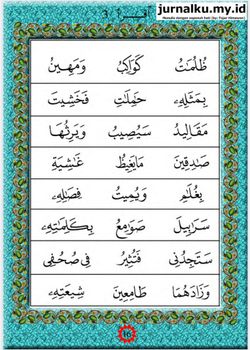 jurnalku.my.id
Menulis dengan sepenuh hati (by: Fajar Himawan)
ظُلُمَاتُ كَوَاكِبُ وَمَهِينُ
بِمِثْلِهِ حَمَلَتْ فَخَشِيتُ
مَقَالِيدُ سَيُصِيبُ وَيَرِثُهَا
صَدِقِينَ مَايَغِيظُ غَشِيَةُ
بِغُلَمٍ وَيُمِيتُ فِصَلُهُ
سَرَابِيلَ صَوَامِعُ بِكَلِمَاتِهِ
سَتَجِدُنِي فَتُثِيرُ فِي صُحُفِي
وَزَادَهُمَا طَامِعِينَ شِيعَتِهِ
16